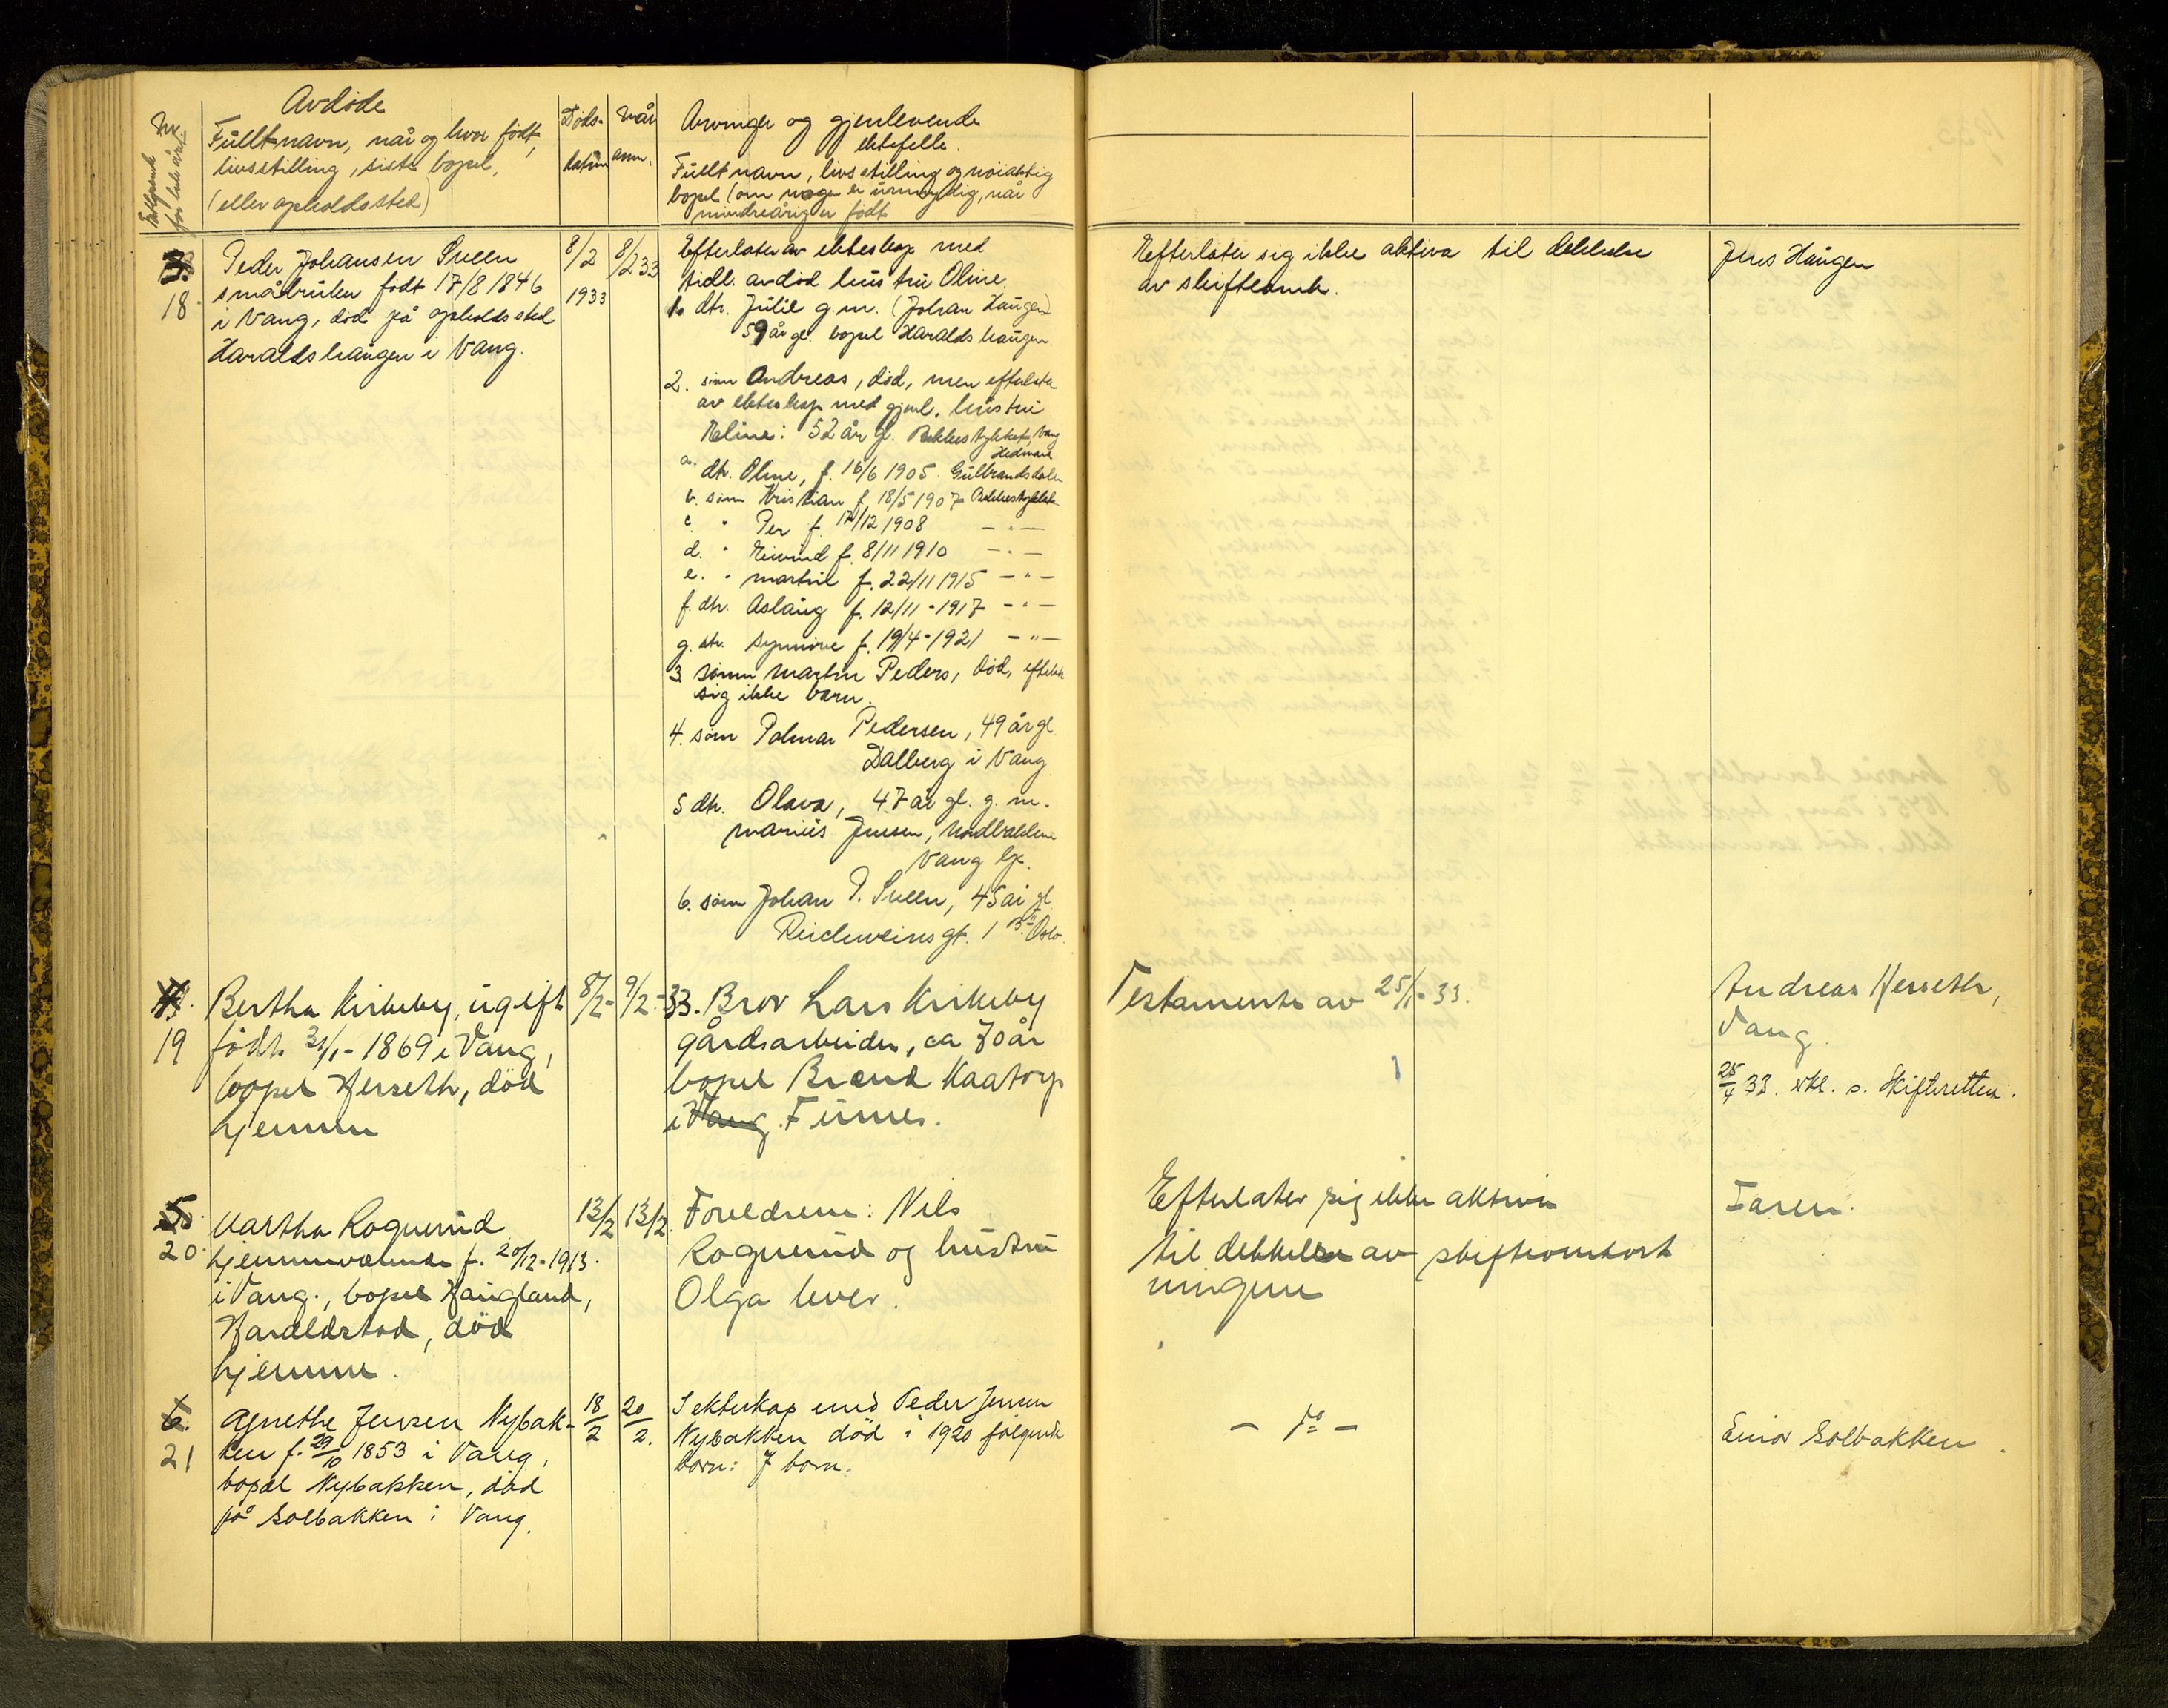 Nr.
Fullgjorende for hele året
Avdøde
Fullt navn, når og hvor født,
livsstilling, siste bopel,
(eller opholdssted)
Døds-
datum
Når
anm.
Arvinger og gjenlevende
ektefelle.
Fullt navn, livsstilling og nøiaktig
bopel (om nogen er umyndig, når
mindreårig er født
18
Peder Johansen Sveen
småbruker født 17/8 1846
i Vang, død på opholdssted
Haraldshaugen i Vang.
8/2
1933
8/2 33
Efterlater av ekteskap med
tidl. avdød hustru Oline.
1. dtr. Julie g.m. (Johan Haugen)
59 år gl. bopel Haraldshaugen
2. sønn Andreas, død, men efterlater
av ekteskap med gjenl. hustru
Eline: 52 år gl. Bekkestykket, Vang
Hedmark
a. dtr. Oline, f. 16/6 1905. Gulbrandsdalen
b. sønn Kristian f. 18/5 1907 Bekkestykket
c. " Per f. 17/12 1908 - " -
d. " Eivind f. 8/11 1910 - " -
e. " Martin f. 22/11 1915 - " -
f. dtr. Aslaug f. 12/11 - 1917 - " -
g. dtr. Synnøve f. 19/4 - 1921 - " -
3 sønn Martin Peders, død, efterlater
sig ikke barn.
4. sønn Palmar Pedersen, 49 år gl.
Dalberg i Vang
5 dtr. Olava, 47 år gl. g. m.
Marius Jensen, Nordbakken
Vang
6. sønn Johan P. Sveen, 45 år gl.
Reichweinsgt. 1 Oslo.
Efterlater sig ikke aktiva til dekkelse
av skifteomk.
Jens Haugen
19
Bertha Kirkeby, ugift
født 31/1 - 1869 i Vang,
bopel Herseth, død
hjemme
8/2 -
9/2 - 33.
Bror Lars Kirkeby
gårdsarbeider, ca 70 år
bopel Brænd Kaatorp
i Vang. Furnes.
Testamente av 25/1 - 33.
Andreas Herseth,
Vang.
25/4 33. erkl. s. Skifteretten.
5.
20.
Martha Rognerud
hjemmeværende f. 20/12 - 1913.
i Vang., bopel Haugland,
Haraldstad, død
hjemme.
13/2
13/2.
Foreldrene: Nils
Rognerud og hustru
Olga lever.
Efterlater sig ikke aktiva
til dekkelse av skifteomkost
ningene
Faren.
6.
21
Agnethe Jensen Nybak-
ken f. 29/10 1853 i Vang,
bopæl Nybakken, død
på Solbakken i Vang.
18/2
20/2.
I ekteskap med Peder Jensen
Nybakken død i 1920 følgende
barn: 7 barn.
- do -
Einar Solbakken.